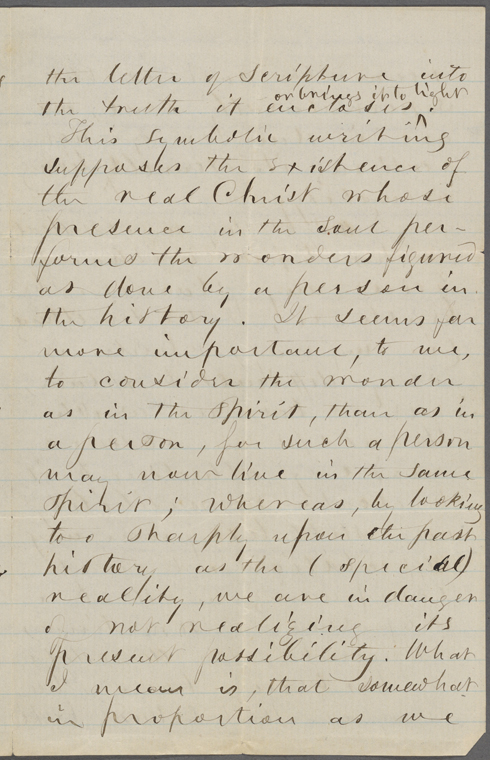 the letter of Scripture into
or brings into light
the truth it encloses.
This symbolic writing
supposes the existence of
the real Christ whose
presence in the soul per-
forms the wonders figured
as done by a person in
the history. It seems far
more important, to me,
to consider the wonder
as in the spirit, than as in
a person, for such a person
may now live in the same
spirit; whereas, by looking
too sharply upon the past
history as the (special)
reality, we are in danger
of not realizing its
present possibility. What
I mean is, that somewhat
in proportion as we